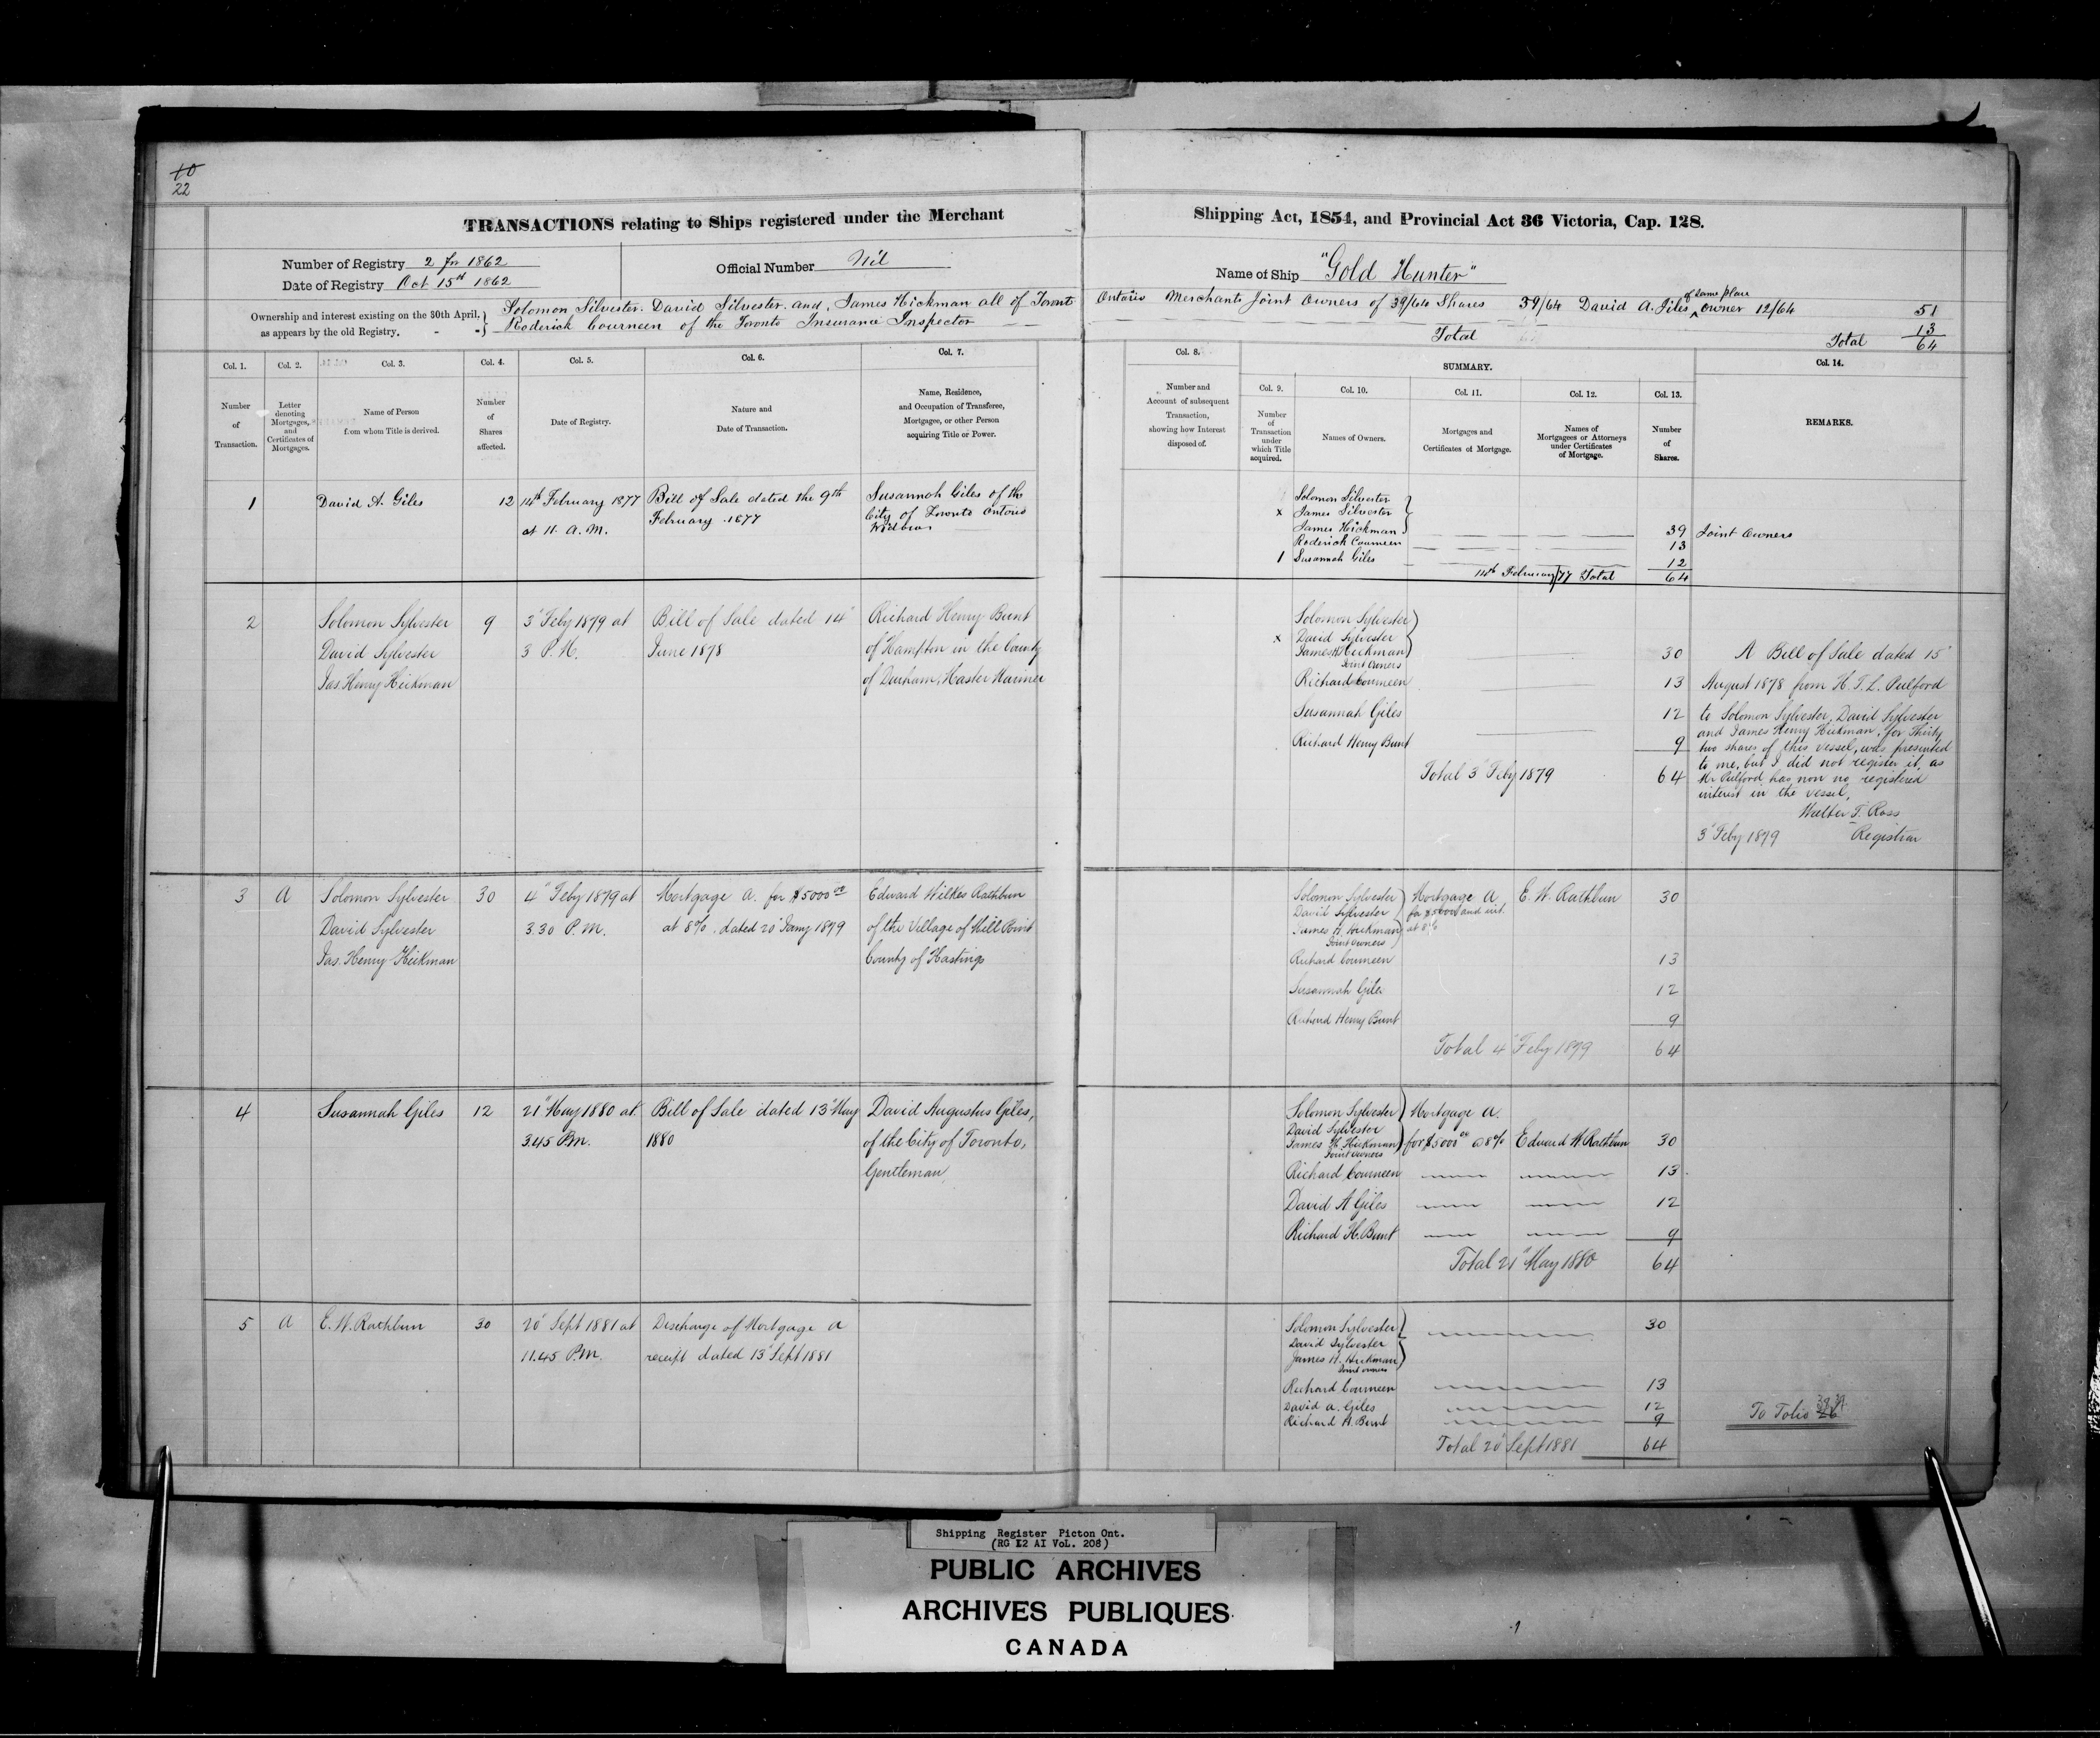 10
22
TRANSACTIONS relating to Ships registered under the Merchant Shipping Act, 1854, and Provincial Act 36 Victoria, Cap. 128.
Number of Registry 2 for 1862
Date of Registry Oct 15th 1862
Official Number Nil
Name of Ship "Gold Hunter"
Ownership and interest existing on the 30th April,
as appears by the old Registry. - -
Solomon Silvester. David Silvester. and, James Hickman all of Toronto Ontario Merchants Joint Owners of 39/64 Shares 39/64 David A. Giles of same place owner 12/64 51
Roderick Courneen of the Toronto Insurance Inspector 13
Total Total 64
Col. 1.
Number
of
Transaction.
Col. 2.
Letter
denoting
Mortgages,
and
Certificates of
Mortgages.
Col. 3.
Name of Person
from whom Title is derived.
Col. 4.
Number
of
Shares
affected.
Col. 5.
Date of Registry.
Col. 6.
Nature and
Date of Transaction.
Col. 7.
Name, Residence,
and Occupation of Transferee,
Mortgagee, or other Person
acquiring Title or Power.
Col. 8.
Number and
Account of subsequent
Transaction,
showing how Interest
disposed of.
SUMMARY.
Col. 9.
Number
of
Transaction
under
which Title
acquired.
Col. 10.
Names of Owners.
Col. 11.
Mortgages and
Certificates of Mortgage.
Col. 12.
Names of
Mortgagees or Attorneys
under Certificates
of Mortgage.
Col. 13.
Number
of
Shares.
Col. 14.
REMARKS.
1
David A. Giles
12
14th February 1877
at 11. A. M.
Bill of Sale dated the 9th
February .1877
Susannah Giles of the
City of Toronto Ontario
Solomon Silvester
x James Silvester
James Hickman 39 Joint Owners
Roderick Courneen 13
1 Susannah Giles 12
14th February/77 Total 64
2
Solomon Sylvester
David Sylvester
Jas. Henry Hickman
9
3" Feby 1879 at
3 P.M.
Bill of Sale dated 14"
June 1878
Richard Henry Bunt
of Hampton in the County
of Durham, Master Mariner
Solomon Sylvester
x David Sylvester
James H Hickman 30
Joint Owners
Richard Courneen 13
Susannah Giles 12
Richard Henry Bunt 9
Total 3" Feby 1879 64
A Bill of Sale dated 15"
August 1878 from H. T. L. Pulford
to Solomon Sylvester, David Sylvester
and James Henry Hickman, for Thirty
two shares of this vessel, was presented
to me, but I did not register it, as
Mr Pulford has now no registered
interest in the vessel,
Walter T. Ross
3" Feby 1879 Registrar
3
A
Solomon Sylvester
David Sylvester
Jas. Henry Hickman
30
4" Feby 1879 at
3.30 P.M.
Mortgage A. for $5000 00
at 8%. dated 20" Jany 1879
Edward Wilkes Rathbun
of the Village of Mill Point
County of Hastings
Solomon Sylvester Mortgage A E. W. Rathbun 30
David Sylvester for $5000 and int.
James H. Hickman at 8%
Joint Owners
Richard Courneen 13
Susannah Giles 12
Richard Henry Bunt 9
Total 4" Feby 1879 64
4
Susannah Giles
12
21" May 1880 at
3.45 P.M.
Bill of Sale dated 13" May
1880
David Augustus Giles,
of the City of Toronto,
Gentleman,
Solomon Sylvester Mortgage A.
David Sylvester
James H. Hickman for $5000 00 @ 8% Edward W. Rathbun 30
Joint Owners
Richard Courneen 13
David A Giles 12
Richard H. Bunt 9
Total 21" May 1880 64
5
A
E. W. Rathbun
30
20" Sept 1881 at
11.45 P.M.
Discharge of Mortgage A
receipt dated 13" Sept 1881
Solomon Sylvester 30
David Sylvester
James H. Hickman
Joint owners
Richard Courneen 13
David A. Giles 12
Richard H. Bunt 9
Total 20" Sept 1881 64
To Folio
Shipping Register Picton Ont.
(RG 12 A1 VoL. 208)
PUBLIC ARCHIVES
ARCHIVES PUBLIQUES
CANADA